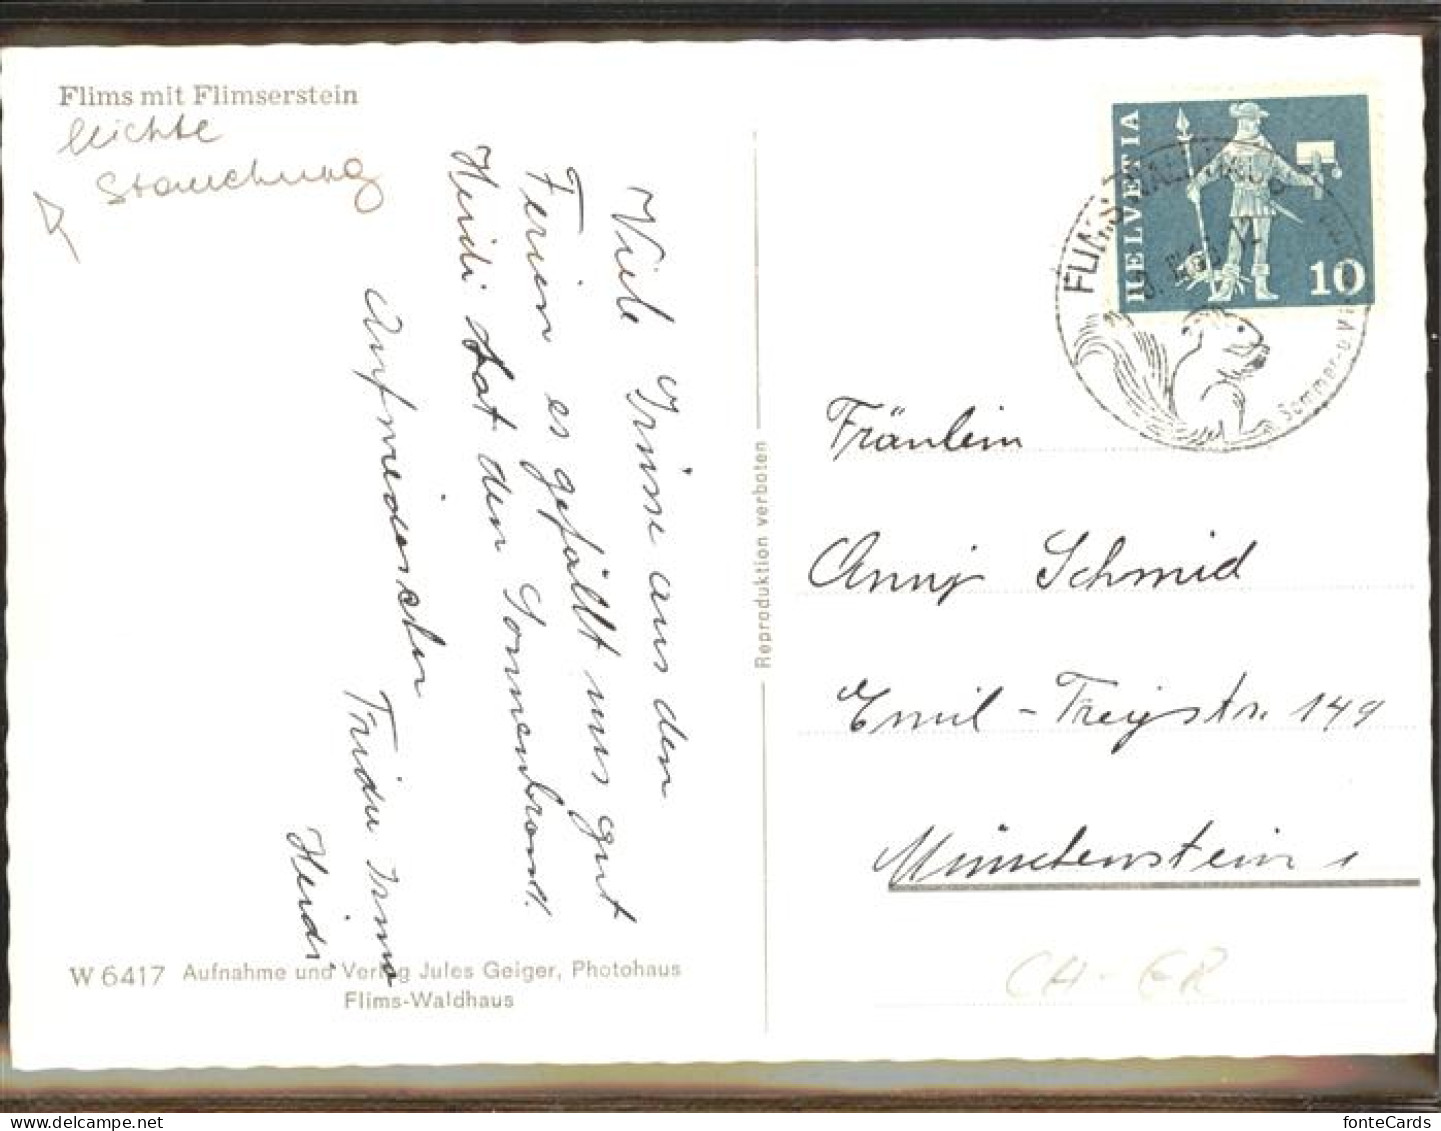 Flims mit Flimserstein
leichte
Stauchung
Viele Grüsse aus den
Ferien es gefällt uns gut
Heidi hat den Sonnenbrand.
Auf wiedersehen
Trudi Irma
Heidi
W 6417 Aufnahme und Verlag Jules Geiger, Photohaus
Flims-Waldhaus
Reproduktion verboten
HELVETIA
10
FLIMS WALDHAUS
Sommer- u
Fräulein
Anny Schmid
Emil-Freystr. 149
Münchenstein 1
CH-GR
fonteCards